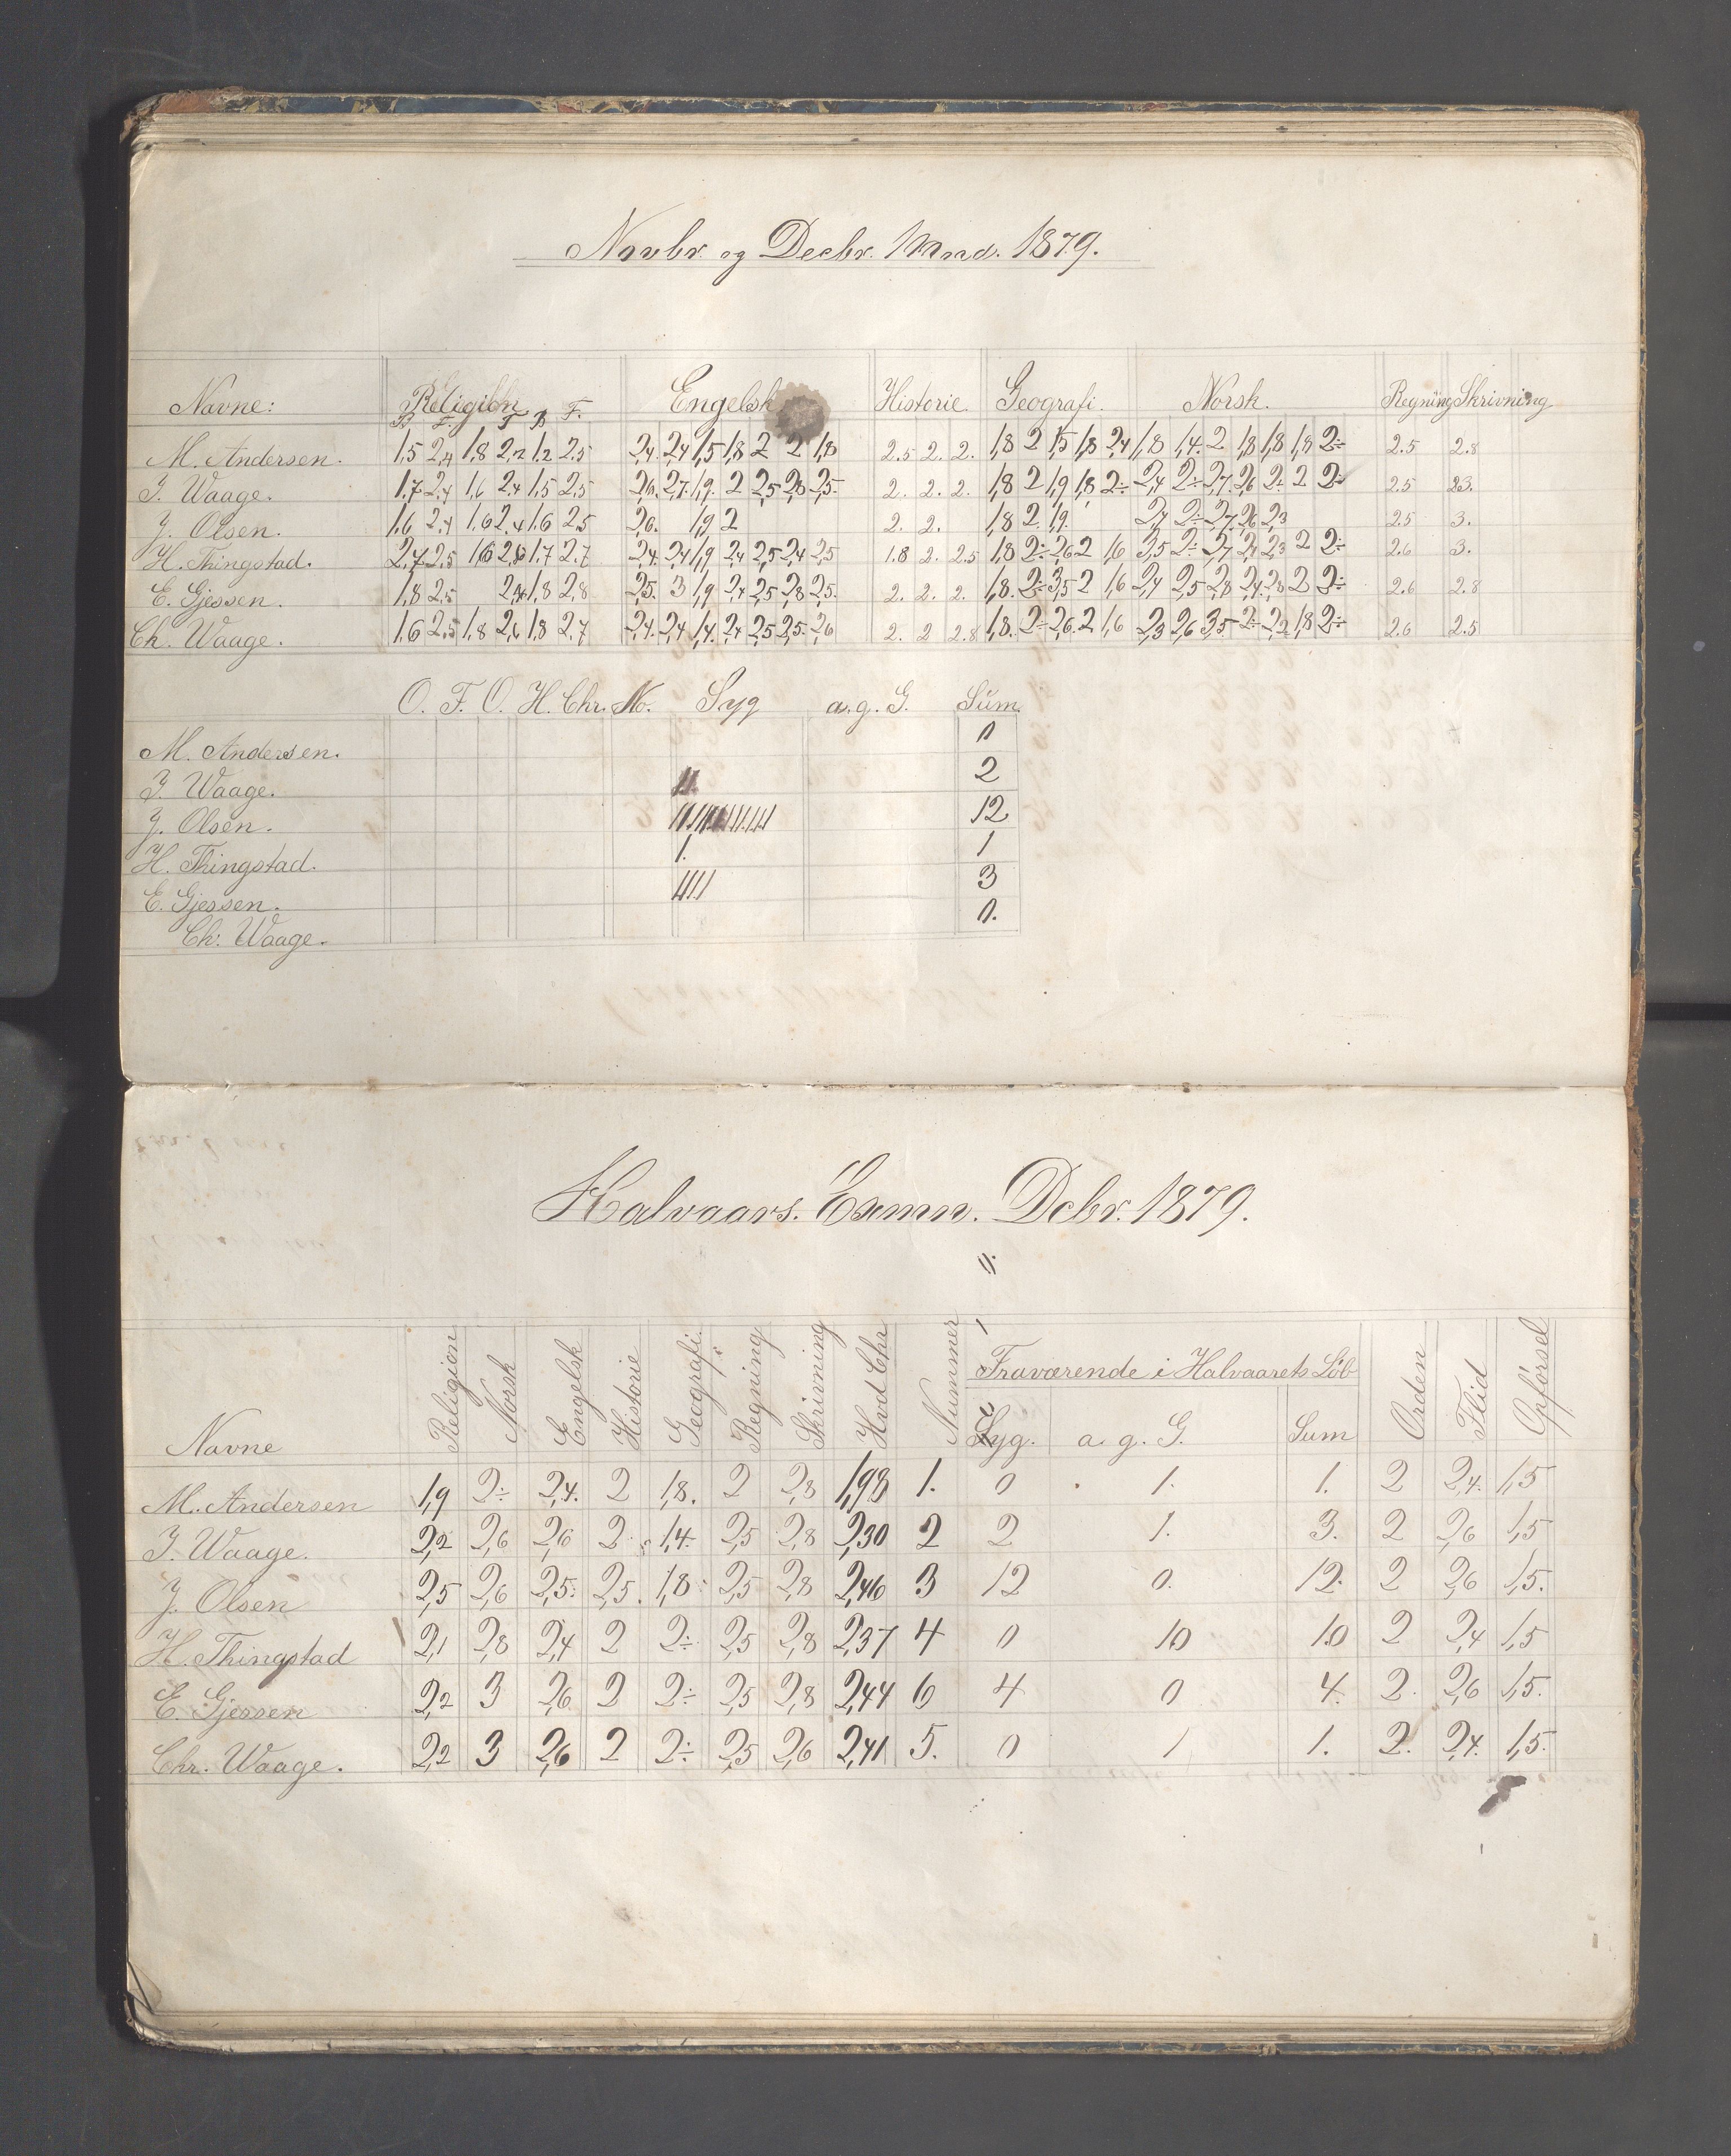 Novbr. og Decbr. Mnd. 1879.
Navne: Religion Engelsk Historie. Geografi. Norsk. Regning Skrivning
B. F. F. B F.
M. Andersen. 1,5 2,4 1,8 2,2 1,2 2,5 2,4. 2,4 1,5 1,8 2 2 1,8 2.5 2. 2. 1,8 2 1,5 1,8 2,4 1,8 1,4. 2 1,8 1,8 1,8 2÷ 2.5 2.8
J. Waage. 1,7 2,4 1,6 2,4 1,5 2,5 2,6. 2,7. 1,9. 2 2,5 2,8 2,5. 2. 2. 2. 1,8 2 1,9 1,8 2÷ 2,4 2÷ 2,7. 2,6 2÷ 2 2÷ 2.5 2.3.
J. Olsen. 1,6 2,4 1,6 2,4 1,6 2,5 2,6. 1,9 2 2. 2. 1,8 2. 1,9. 2,4 2÷ 2,7. 2,6 2,3 2.5 3.
H. Thingstad. 2,7 2,5 1,6 2,6 1,7 2,7 2,4. 2,4 1,9 2,4 2,5 2,4 2,5 1.8 2. 2.5 1,8 2÷ 2,6 2 1,6 3,5 2÷ 2,7 2,4 2,3 2 2÷ 2.6 3.
E. Gjessen. 1,8 2,5 2,4 1,8 2,8 2,5. 3 1,9 2,4 2,5 2,8 2,5. 2. 2. 2. 1,8. 2÷ 3,5 2 1,6 2,4 2,5 2,8 2,4. 2,8 2 2÷ 2.6 2.8
Ch. Waage. 1,6 2,5 1,8 2,6 1,8 2,7 2,4. 2,4 1,4. 2,4 2,5 2,5. 2,6 2. 2 2.8 1,8. 2÷ 2,6. 2 1,6 2,3 2,6 3,5 2÷ 2,2 1,8 2÷ 2.6 2.5
O. F. O. H. Chr. No. Syg a. g. G. Sum.
M. Andersen. 0
J. Waage. 2
J. Olsen. 12
H. Thingstad. 1. 1
E. Gjessen. 3
Ch: Waage. 0.
Halvaars. Exmn. Dcbr. 1879.
Navne Religion Norsk Engelsk Historie Geografi. Regning Skrivning Hvd Chr Nummer Fraværende i Halvaarets Løb Orden Flid Opførsel
Syg. a. g. G. Sum
M. Andersen 1,9 2÷ 2,4. 2 1,8. 2 2,8 1,98 1. 0 1. 1. 2 2,4. 1,5
J. Waage. 2,2 2,6 2,6 2 1,4. 2,5 2,8 2,30 2 2 1. 3. 2 2,6 1,5
J. Olsen 2,5 2,6 2,5. 2,5. 1,8. 2,5 2,8 2,46 3 12 0. 12. 2 2,6 1,5.
H. Thingstad 2,1 2,8 2,4 2 2÷ 2,5 2,8 2,37 4 0 10 10 2 2,4 1,5
E. Gjessen 2,2 3 2,6 2 2÷ 2,5 2,8 2,44 6 4 0 4. 2. 2,6 1,5.
Chr. Waage. 2,2 3 2,6 2 2÷ 2,5 2,6 2,41 5. 0 1 1. 2. 2,4. 1,5.